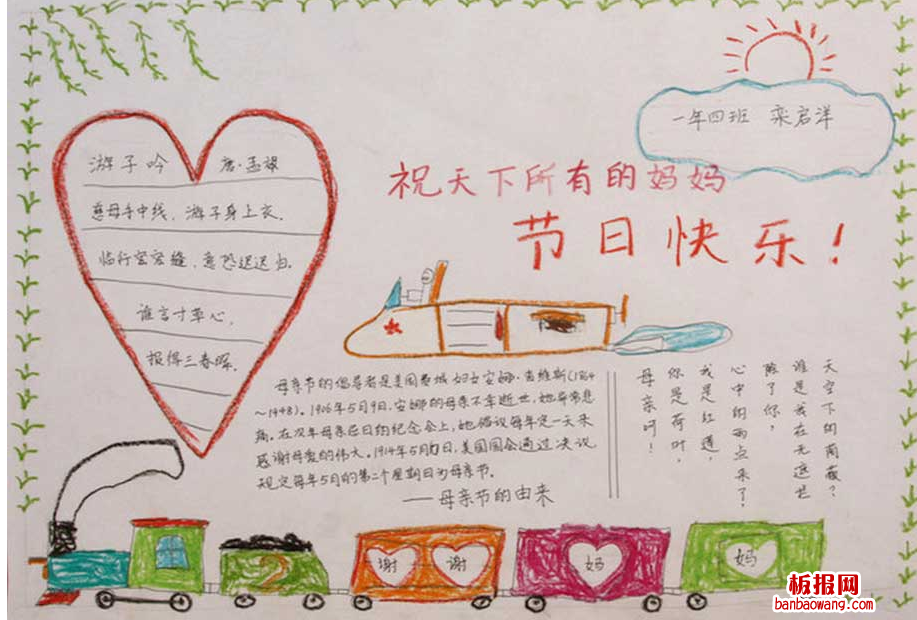 游子吟 唐·孟郊
慈母手中线,游子身上衣。
临行密密缝,意恐迟迟归。
谁言寸草心,
报得三春晖。
一年四班 栾启洋
祝天下所有的妈妈
节日快乐!
母亲节的倡导者是美国费城妇女安娜·查维斯(1864
~1948)。1906年5月9日,安娜的母亲不幸逝世,她非常悲
痛。在次年母亲忌日的纪念会上,她倡议每年定一天来
感谢母爱的伟大。1914年5月日,美国国会通过决议
规定每年5月的第二个星期日为母亲节。
——母亲节的由来
母亲呵!
你是荷叶,
我是红莲,
心中的雨点来了,
除了你,
谁是我在无遮拦
天空下的荫蔽?
谢 谢 妈 妈
板报网
banbaowang.com